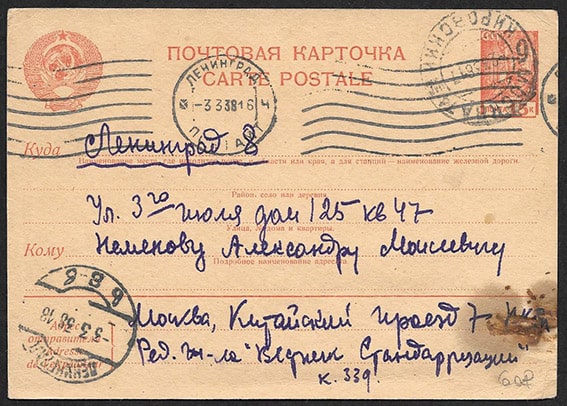 ПОЧТОВАЯ КАРТОЧКА
CARTE POSTALE
ЛЕНИНГРАД
-3.3.38 16
ПОЧТАМТ
Куда Ленинград 8
Наименование места, где или края, а для станций — наименование железной дороги
Район, село или деревня
Ул. 3го июля дом 125 кв 47
Улица, № дома и квартиры.
Кому Неменову Александру Моисеевичу
Подробное наименование адресата
6 В-6
-3 3 38 18
ЛЕНИНГРАД
Адрес отправителя
Adresse de l'expéditeur
Москва, Китайский проезд 7
Ред. ж-ла "Вестник Стандартизации"
к. 339.
60р